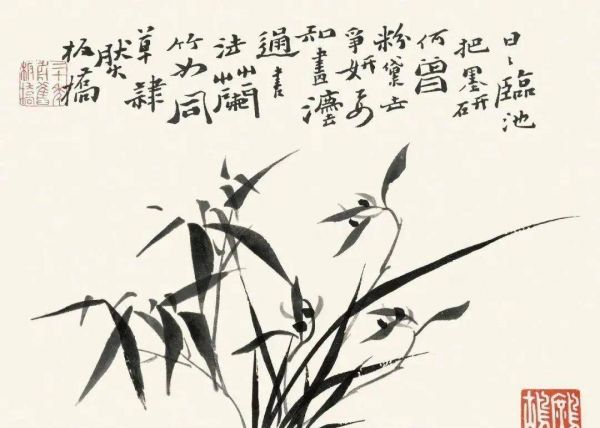 日〻臨池
把墨研
何曾
粉黛去
爭妍要
知畫灋
通書
法蘭
竹如同
草隸
然
板橋